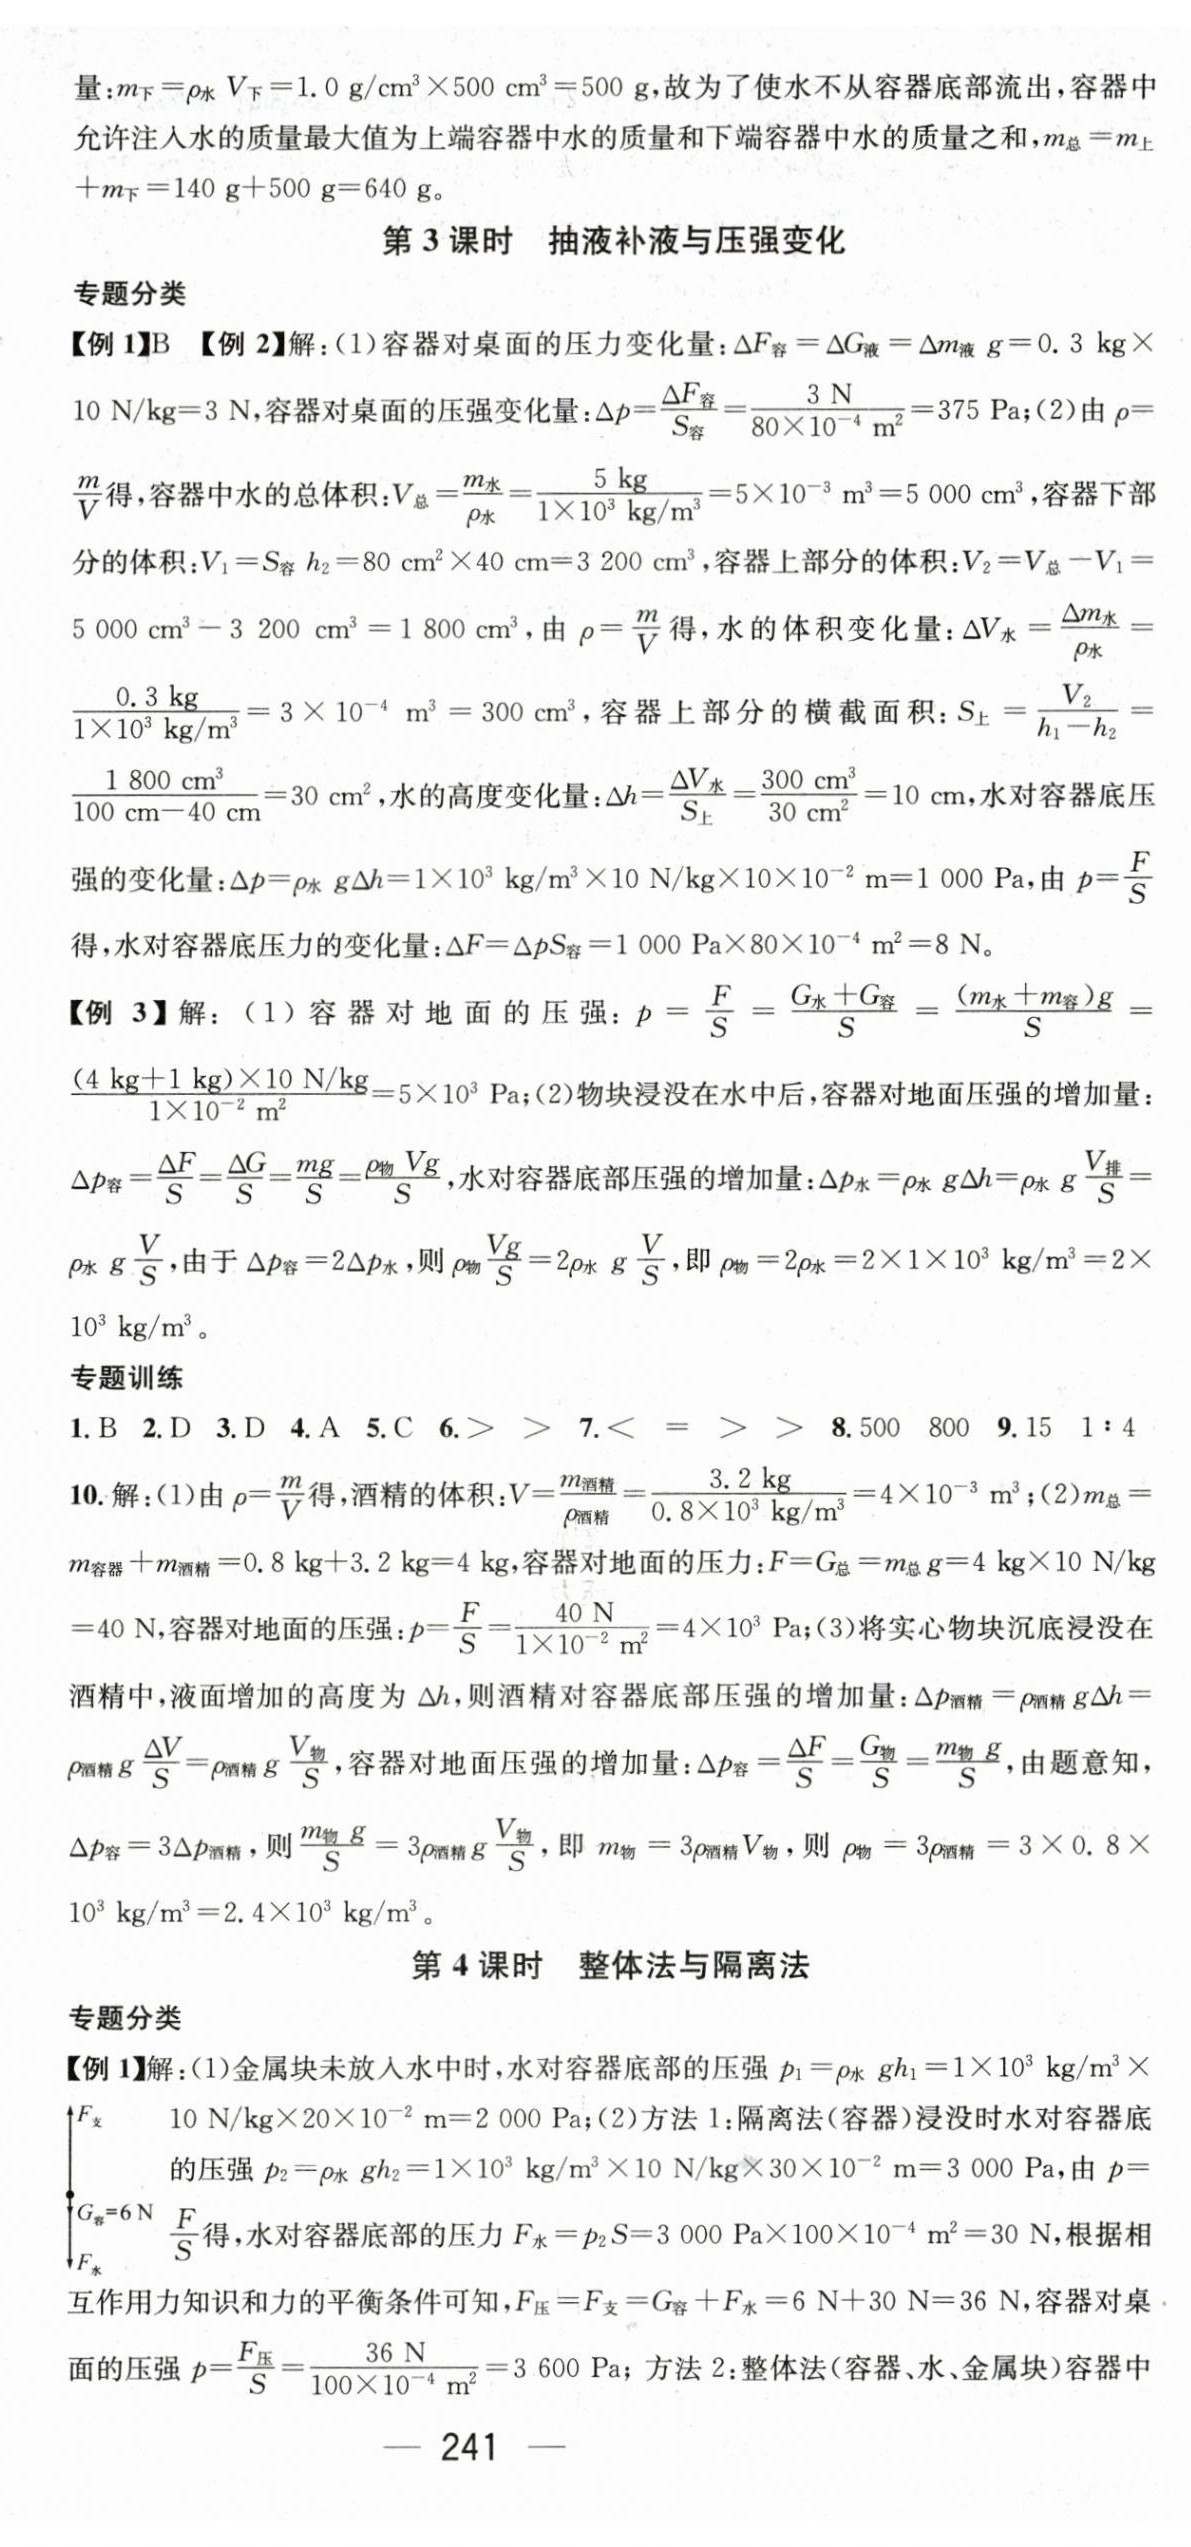 量:m下=ρ水 V下=1.0 g/cm³×500 cm³=500 g,故为了使水不从容器底部流出,容器中
允许注入水的质量最大值为上端容器中水的质量和下端容器中水的质量之和,m总=m上
+m下=140 g+500 g=640 g。
第 3 课时　抽液补液与压强变化
专题分类
【例 1】B　【例 2】解:(1)容器对桌面的压力变化量:ΔF容=ΔG液=Δm液 g=0.3 kg×
10 N/kg=3 N,容器对桌面的压强变化量:Δp=ΔF容/S容=3 N/(80×10⁻⁴ m²)=375 Pa;(2)由 ρ=
m/V得,容器中水的总体积:V总=m水/ρ水=5 kg/(1×10³ kg/m³)=5×10⁻³ m³=5 000 cm³,容器下部
分的体积:V₁=S容 h₂=80 cm²×40 cm=3 200 cm³,容器上部分的体积:V₂=V总-V₁=
5 000 cm³-3 200 cm³=1 800 cm³,由 ρ=m/V得,水的体积变化量:ΔV水=Δm水/ρ水=
0.3 kg/(1×10³ kg/m³)=3×10⁻⁴ m³=300 cm³,容器上部分的横截面积:S上=V₂/(h₁-h₂)=
1 800 cm³/(100 cm-40 cm)=30 cm²,水的高度变化量:Δh=ΔV水/S上=300 cm³/30 cm²=10 cm,水对容器底压
强的变化量:Δp=ρ水 gΔh=1×10³ kg/m³×10 N/kg×10×10⁻² m=1 000 Pa,由 p=F/S
得,水对容器底压力的变化量:ΔF=ΔpS容=1 000 Pa×80×10⁻⁴ m²=8 N。
【例 3】解:(1)容器对地面的压强:p=F/S=(G水+G容)/S=(m水+m容)g/S=
(4 kg+1 kg)×10 N/kg/(1×10⁻² m²)=5×10³ Pa;(2)物块浸没在水中后,容器对地面压强的增加量:
Δp容=ΔF/S=ΔG/S=mg/S=ρ物 Vg/S,水对容器底部压强的增加量:Δp水=ρ水 gΔh=ρ水 g V排/S=
ρ水 g V/S,由于 Δp容=2Δp水,则 ρ物 Vg/S=2ρ水 g V/S,即 ρ物=2ρ水=2×1×10³ kg/m³=2×
10³ kg/m³。
专题训练
1. B　2. D　3. D　4. A　5. C　6. >　>　7. <　=　>　>　8. 500　800　9. 15　1∶4
10. 解:(1)由 ρ=m/V得,酒精的体积:V=m酒精/ρ酒精=3.2 kg/(0.8×10³ kg/m³)=4×10⁻³ m³;(2)m总=
m容器+m酒精=0.8 kg+3.2 kg=4 kg,容器对地面的压力:F=G总=m总g=4 kg×10 N/kg
=40 N,容器对地面的压强:p=F/S=40 N/(1×10⁻² m²)=4×10³ Pa;(3)将实心物块沉底浸没在
酒精中,液面增加的高度为 Δh,则酒精对容器底部压强的增加量:Δp酒精=ρ酒精 gΔh=
ρ酒精 g ΔV/S=ρ酒精 g V物/S,容器对地面压强的增加量:Δp容=ΔF/S=G物/S=m物 g/S,由题意知,
Δp容=3Δp酒精,则 m物 g/S=3ρ酒精 g V物/S,即 m物=3ρ酒精V物,则 ρ物=3ρ酒精=3×0.8×
10³ kg/m³=2.4×10³ kg/m³。
第 4 课时　整体法与隔离法
专题分类
【例 1】解:(1)金属块未放入水中时,水对容器底部的压强 p₁=ρ水 gh₁=1×10³ kg/m³×
F支
10 N/kg×20×10⁻² m=2 000 Pa;(2)方法 1:隔离法(容器)浸没时水对容器底
的压强 p₂=ρ水 gh₂=1×10³ kg/m³×10 N/kg×30×10⁻² m=3 000 Pa,由 p=
G容=6 N
F/S得,水对容器底部的压力 F水=p₂S=3 000 Pa×100×10⁻⁴ m²=30 N,根据相
F水
互作用力知识和力的平衡条件可知,F压=F支=G容+F水=6 N+30 N=36 N,容器对桌
面的压强 p=F压/S=36 N/(100×10⁻⁴ m²)=3 600 Pa;方法 2:整体法(容器、水、金属块)容器中
— 241 —